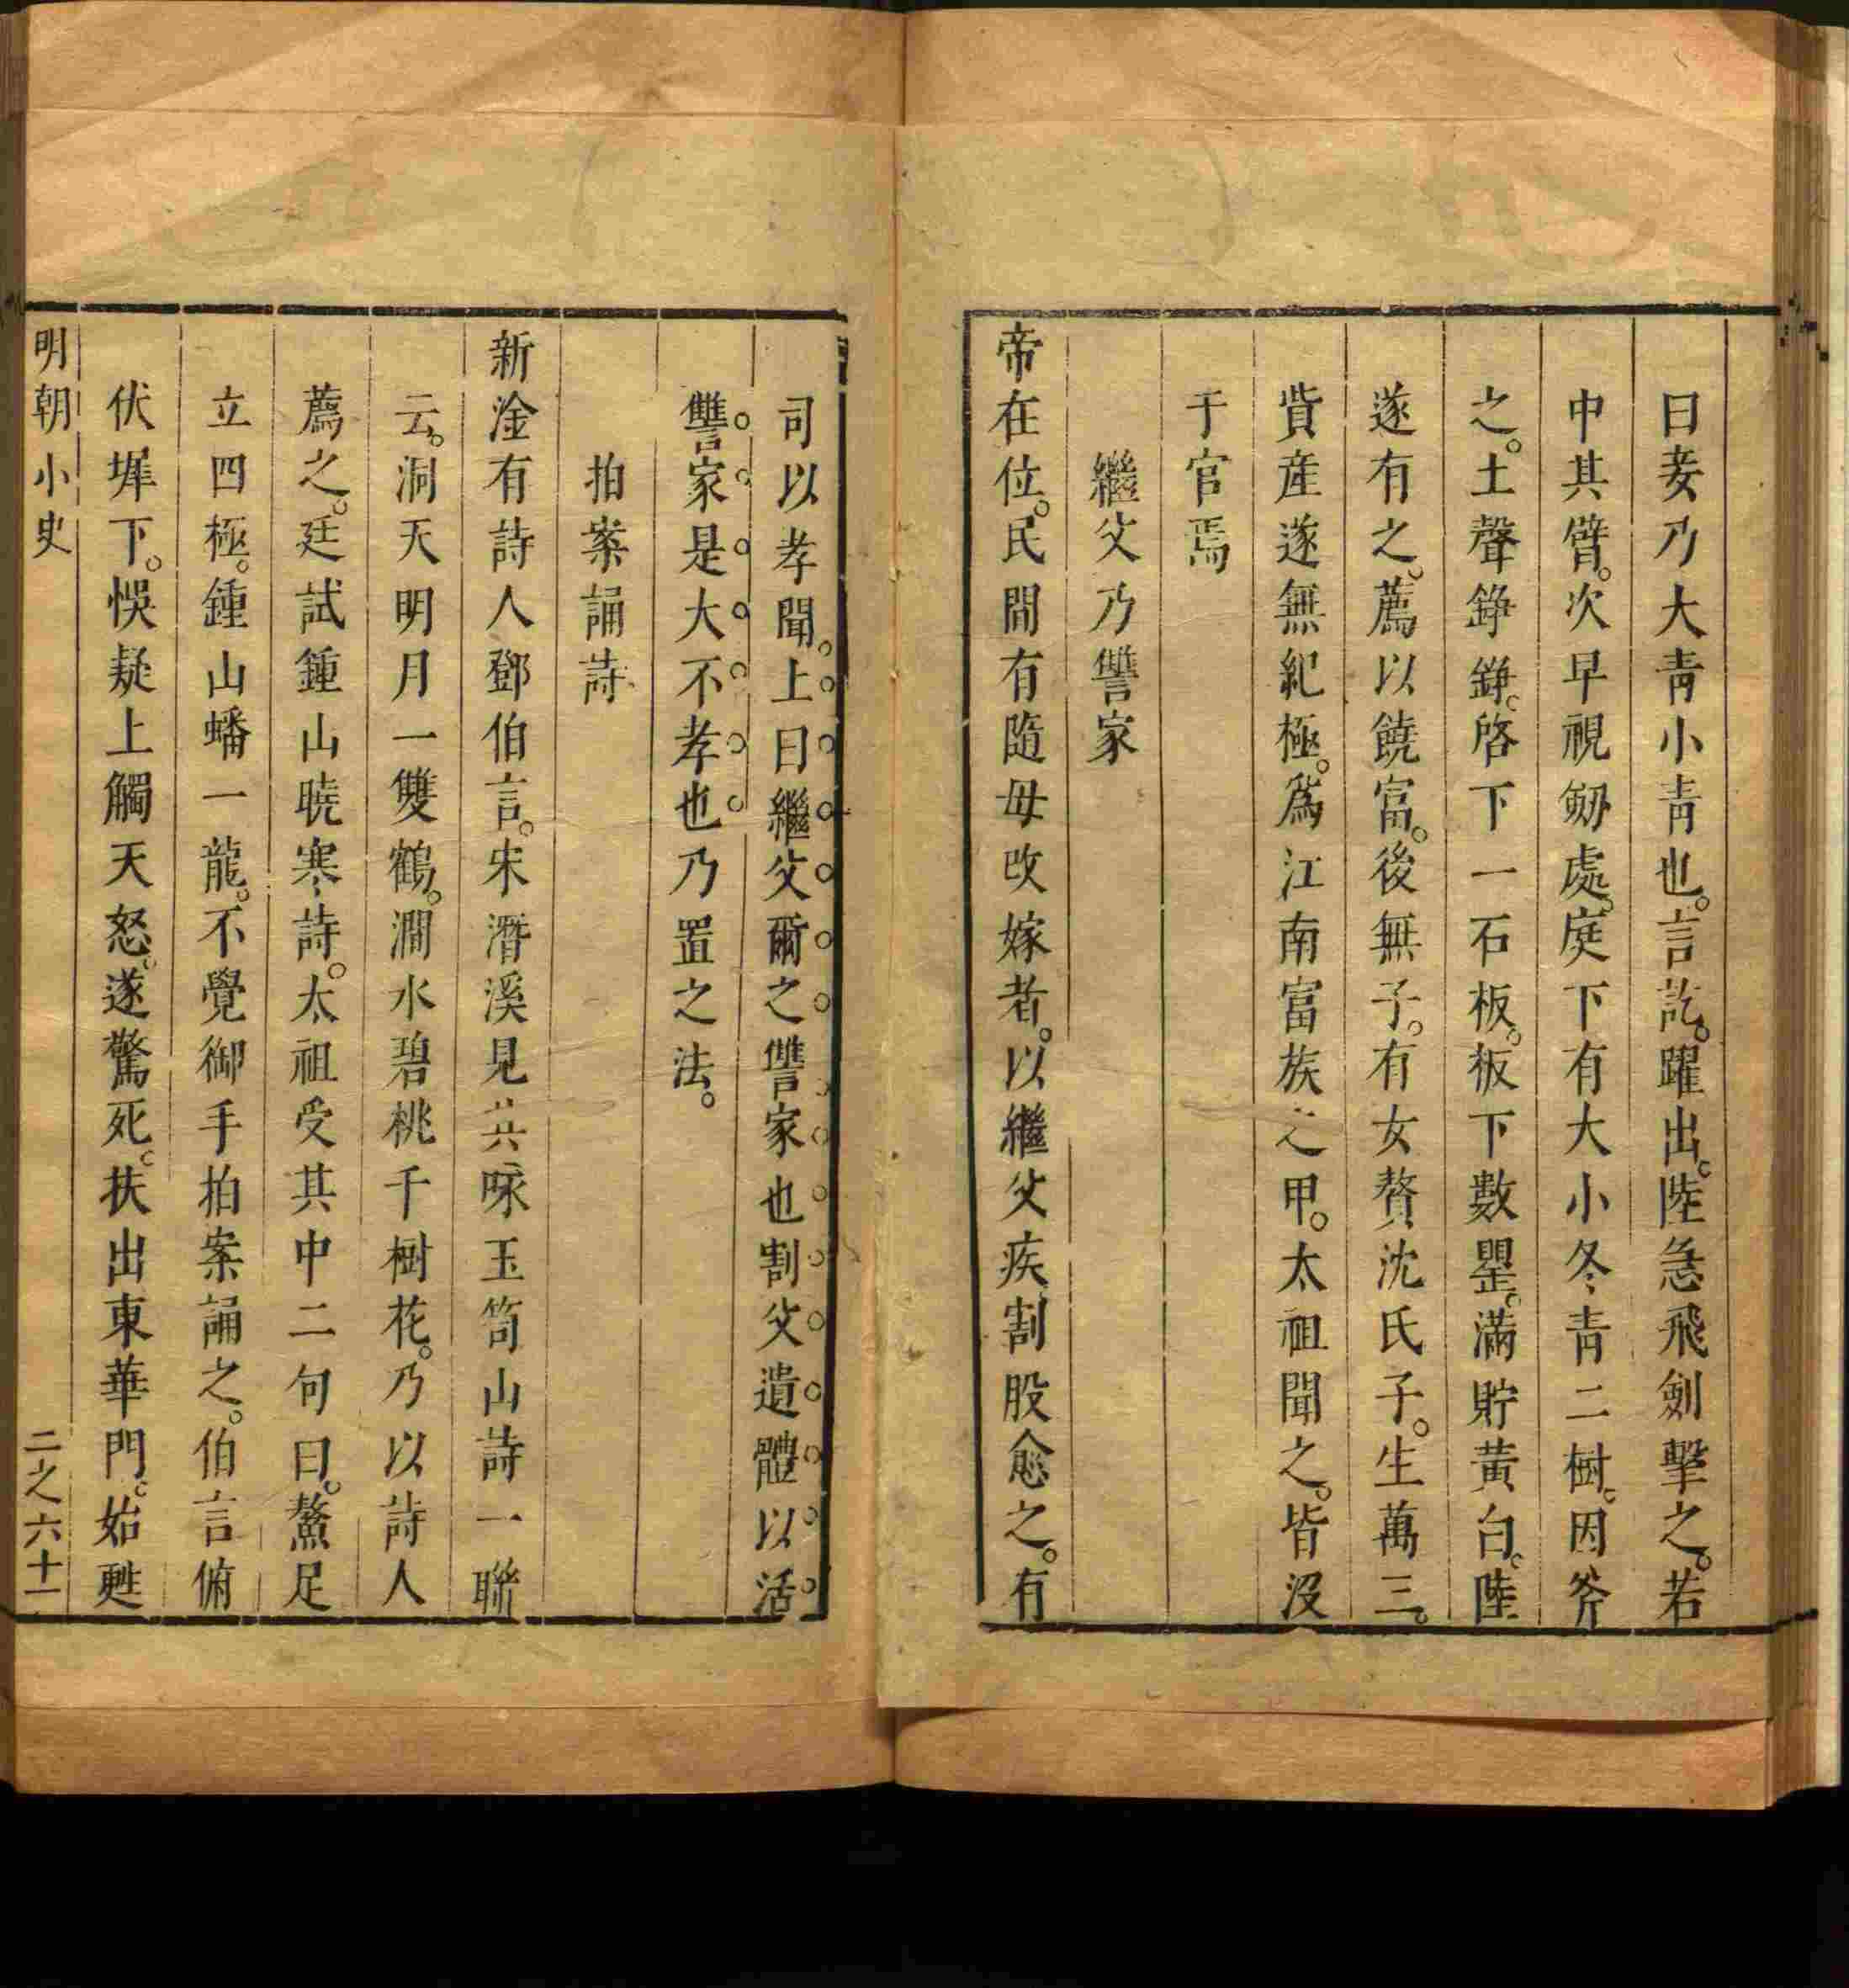 曰妾乃大靑小靑也。言訖。躍出。陸急飛劍擊之。若
中其臂。次早視劒處。庭下有大小冬靑二樹。因斧
之。土聲錚錚。啓下一石板。板下數罌。滿貯黃白。陸
遂有之。薦以饒富。後無子。有女贅沈氏子。生萬三。
貲産遂無紀極。爲江南富族之甲。太祖聞之。皆沒
于官焉
繼父乃讐家
帝在位。民間有隨母改嫁者。以繼父疾割股愈之。有
司以孝聞。上曰繼父爾之讐家也割父遺體以活
讐家是大不孝也乃置之法。
拍案誦詩
新淦有詩人鄧伯言。宋潛溪見其咏玉笥山詩一聯
云。洞天明月一雙鶴。澗水碧桃千樹花。乃以詩人
薦之。廷試鍾山曉寒詩。太祖受其中二句曰。鰲足
立四極。鍾山蟠一龍。不覺御手拍案誦之。伯言俯
伏墀下。悞疑上觸天怒。遂驚死。扶出東華門。始甦
明朝小史
二之六十一